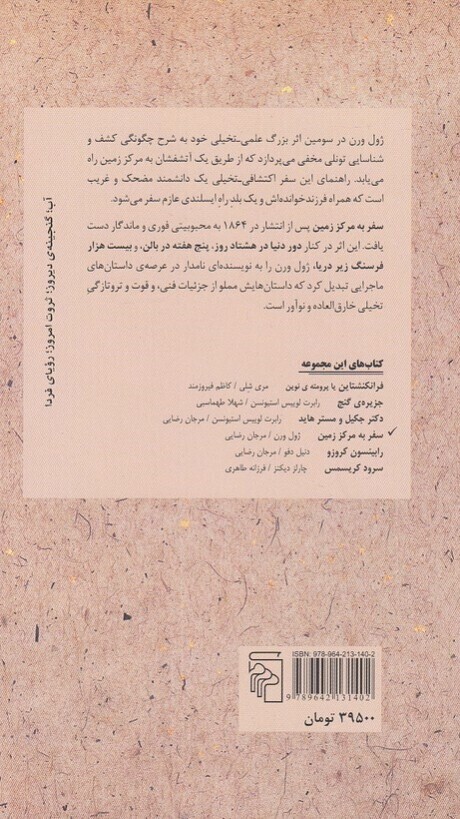 ژول ورن در سومین اثر بزرگ علمی‌ـ‌تخیلی خود به شرح چگونگی کشف و
شناسایی تونلی مخفی می‌پردازد که از طریق یک آتشفشان به مرکز زمین راه
می‌یابد. راهنمای این سفر اکتشافی‌ـ‌تخیلی یک دانشمند مضحک و غریب
است که همراه فرزندخوانده‌اش و یک بلدِ راه ایسلندی عازم سفر می‌شود.
سفر به مرکز زمین پس از انتشار در ۱۸۶۴ به محبوبیتی فوری و ماندگار دست
یافت. این اثر در کنار دور دنیا در هشتاد روز، پنج هفته در بالن، و بیست هزار
فرسنگ زیر دریا، ژول ورن را به نویسنده‌ای نامدار در عرصه‌ی داستان‌های
ماجرایی تبدیل کرد که داستان‌هایش مملو از جزئیات فنی، و قوت و تروتازگیِ
تخیلی خارق‌العاده و نوآور است.
کتاب‌های این مجموعه
فرانکنشتاین یا پرومته ی نوین مری شلی / کاظم فیروزمند
جزیره‌ی گنج رابرت لوییس استیونسن / شهلا طهماسبی
دکتر جکیل و مستر هاید رابرت لوییس استیونسن / مرجان رضایی
✓ سفر به مرکز زمین ژول ورن / مرجان رضایی
رابینسون کروزو دنیل دفو / مرجان رضایی
سرود کریسمس چارلز دیکنز / فرزانه طاهری
آب؛ گنجینه‌ی دیروز؛ ثروت امروز؛ رؤیای فردا
ISBN: 978-964-213-140-2
9 789642 131402
۳۹۵۰۰ تومان